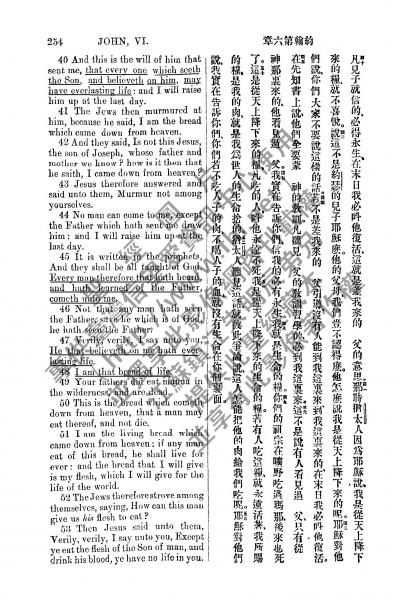 254 JOHN, VI.
章六第翰約
40 And this is the will of him that
sent me, that every one which seeth
the Son, and believeth on him, may
have everlasting life: and I will raise
him up at the last day.
41 The Jews then murmured at
him, because he said, I am the bread
which came down from heaven.
42 And they said, Is not this Jesus,
the son of Joseph, whose father and
mother we know? how is it then that
he saith, I came down from heaven?
43 Jesus therefore answered and
said unto them, Murmur not among
yourselves.
44 No man can come to me, except
the Father which hath sent me draw
him: and I will raise him up at the
last day.
45 It is written in the prophets,
And they shall be all taught of God.
Every man therefore that hath heard,
and hath learned of the Father,
cometh unto me.
46 Not that any man hath seen
the Father, save he which is of God,
he hath seen the Father.
47 Verily, verily, I say unto you,
He that believeth on me hath ever-
lasting life.
48 I am that bread of life.
49 Your fathers did eat manna in
the wilderness, and are dead.
50 This is the bread which cometh
down from heaven, that a man may
eat thereof, and not die.
51 I am the living bread which
came down from heaven: if any man
eat of this bread, he shall live for
ever: and the bread that I will give
is my flesh, which I will give for the
life of the world.
52 The Jews therefore strove among
themselves, saying, How can this man
give us his flesh to eat?
53 Then Jesus said unto them,
Verily, verily, I say unto you, Except
ye eat the flesh of the Son of man, and
drink his blood, ye have no life in you.
凡見子就信的必得永生在末日我必叫他復活這就是差我來的 父的意思那時猶太人因爲耶穌說我是從天上降下
來的糧就不喜悅說這不是約瑟的兒子耶穌麽他的父母我們豈不認得麽他怎麽說我是從天上降下來的呢耶穌對他
們說你們大家不要說這樣的話若不是差我來的 父引導沒有人能到我這裏來到我這裏來的在末日我必叫他復活
在先知書上說他們全要蒙 神的敎訓凡聽見 父的敎訓學習的必到我這裏來這不是說有人看見過 父只有從
神那裏來的他看見過 父我實在告訴你們信我的必有永生我是生命的糧你們的祖宗在曠野吃過瑪那後來也死
了這是從天上降下來的糧凡吃的人叫他永遠不死我是從天上降下來的生命的糧若有人吃這糧就永遠活著我所賜
的糧就是我的肉就是我爲世人的生命捨的猶太人聽見這話就彼此爭論說這人怎能把他的肉給我們吃呢耶穌對他們
說我實在告訴你們你們若不吃人子的肉不喝人子的血就沒有生命在你們裏面